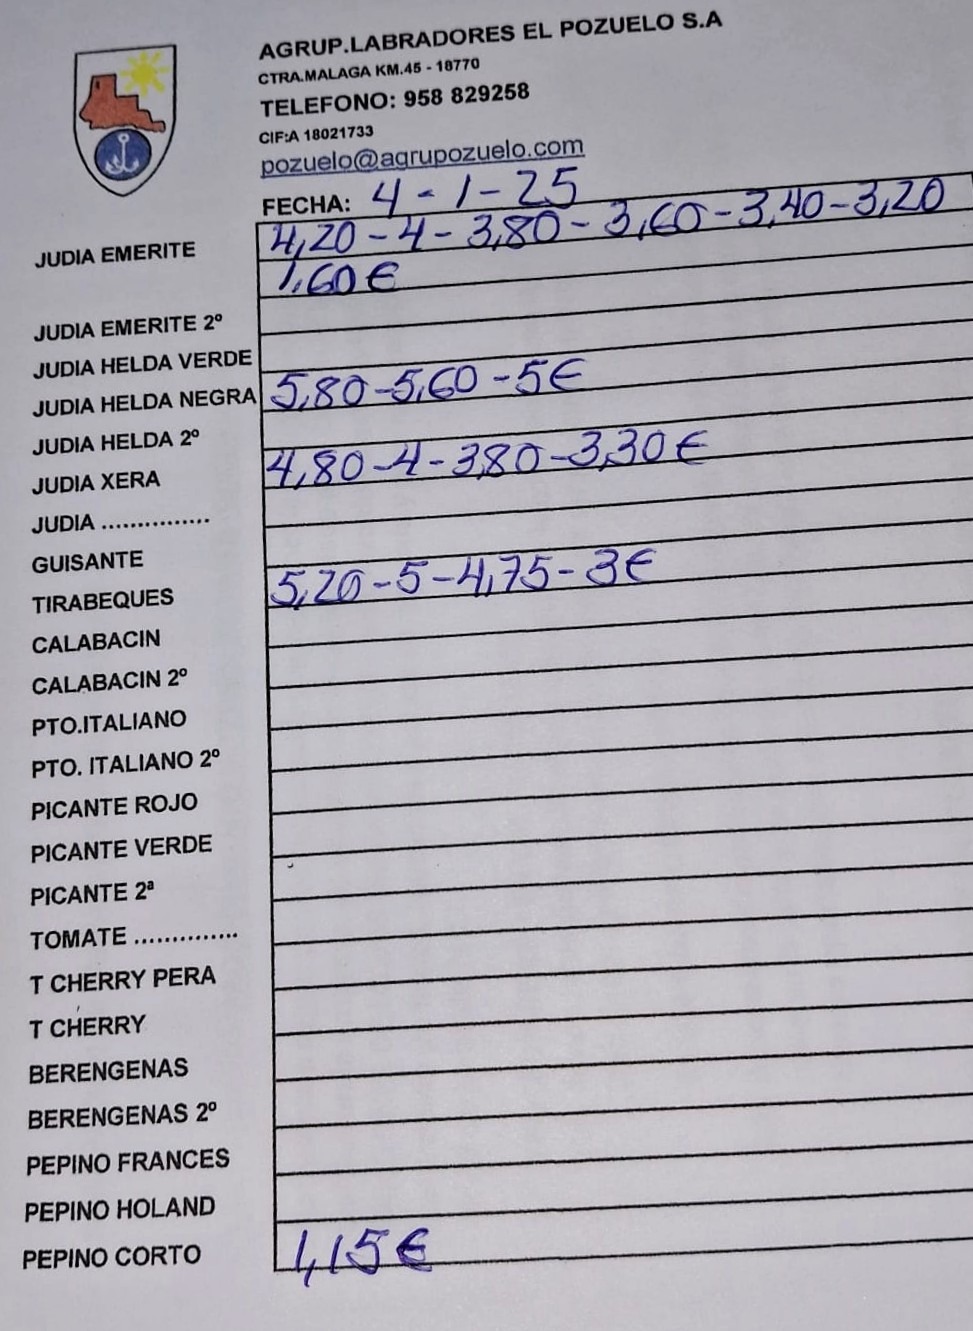 AGRUP.LABRADORES EL POZUELO S.A
CTRA.MALAGA KM.45 - 18770
TELEFONO: 958 829258
CIF:A 18021733
pozuelo@agrupozuelo.com
FECHA: 4-1-25
JUDIA EMERITE 4,20-4-3,80-3,60-3,40-3,20
1,60€
JUDIA EMERITE 2º
JUDIA HELDA VERDE
JUDIA HELDA NEGRA 5,80-5,60-5€
JUDIA HELDA 2º
JUDIA XERA 4,80-4-3,80-3,30€
JUDIA ...............
GUISANTE
TIRABEQUES 5,20-5-4,75-3€
CALABACIN
CALABACIN 2º
PTO.ITALIANO
PTO. ITALIANO 2º
PICANTE ROJO
PICANTE VERDE
PICANTE 2ª
TOMATE ..............
T CHERRY PERA
T CHERRY
BERENGENAS
BERENGENAS 2º
PEPINO FRANCES
PEPINO HOLAND
PEPINO CORTO 1,15€